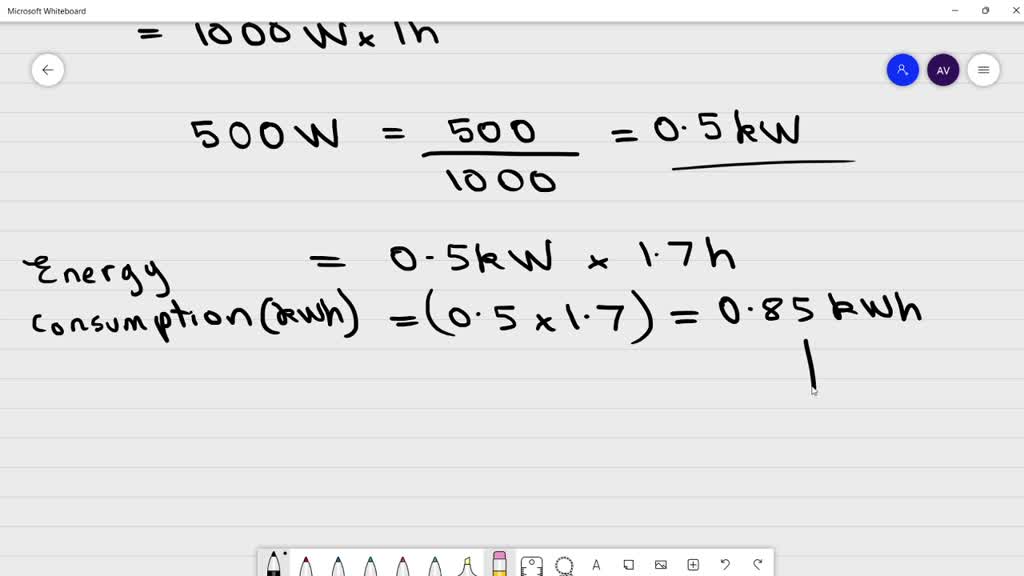 Microsoft Whiteboard
= 1000 W x 1h
AV
500 W = 500 / 1000 = 0.5 kW
Energy = 0.5 kW x 1.7 h
consumption (kWh) = (0.5 x 1.7) = 0.85 kWh
A